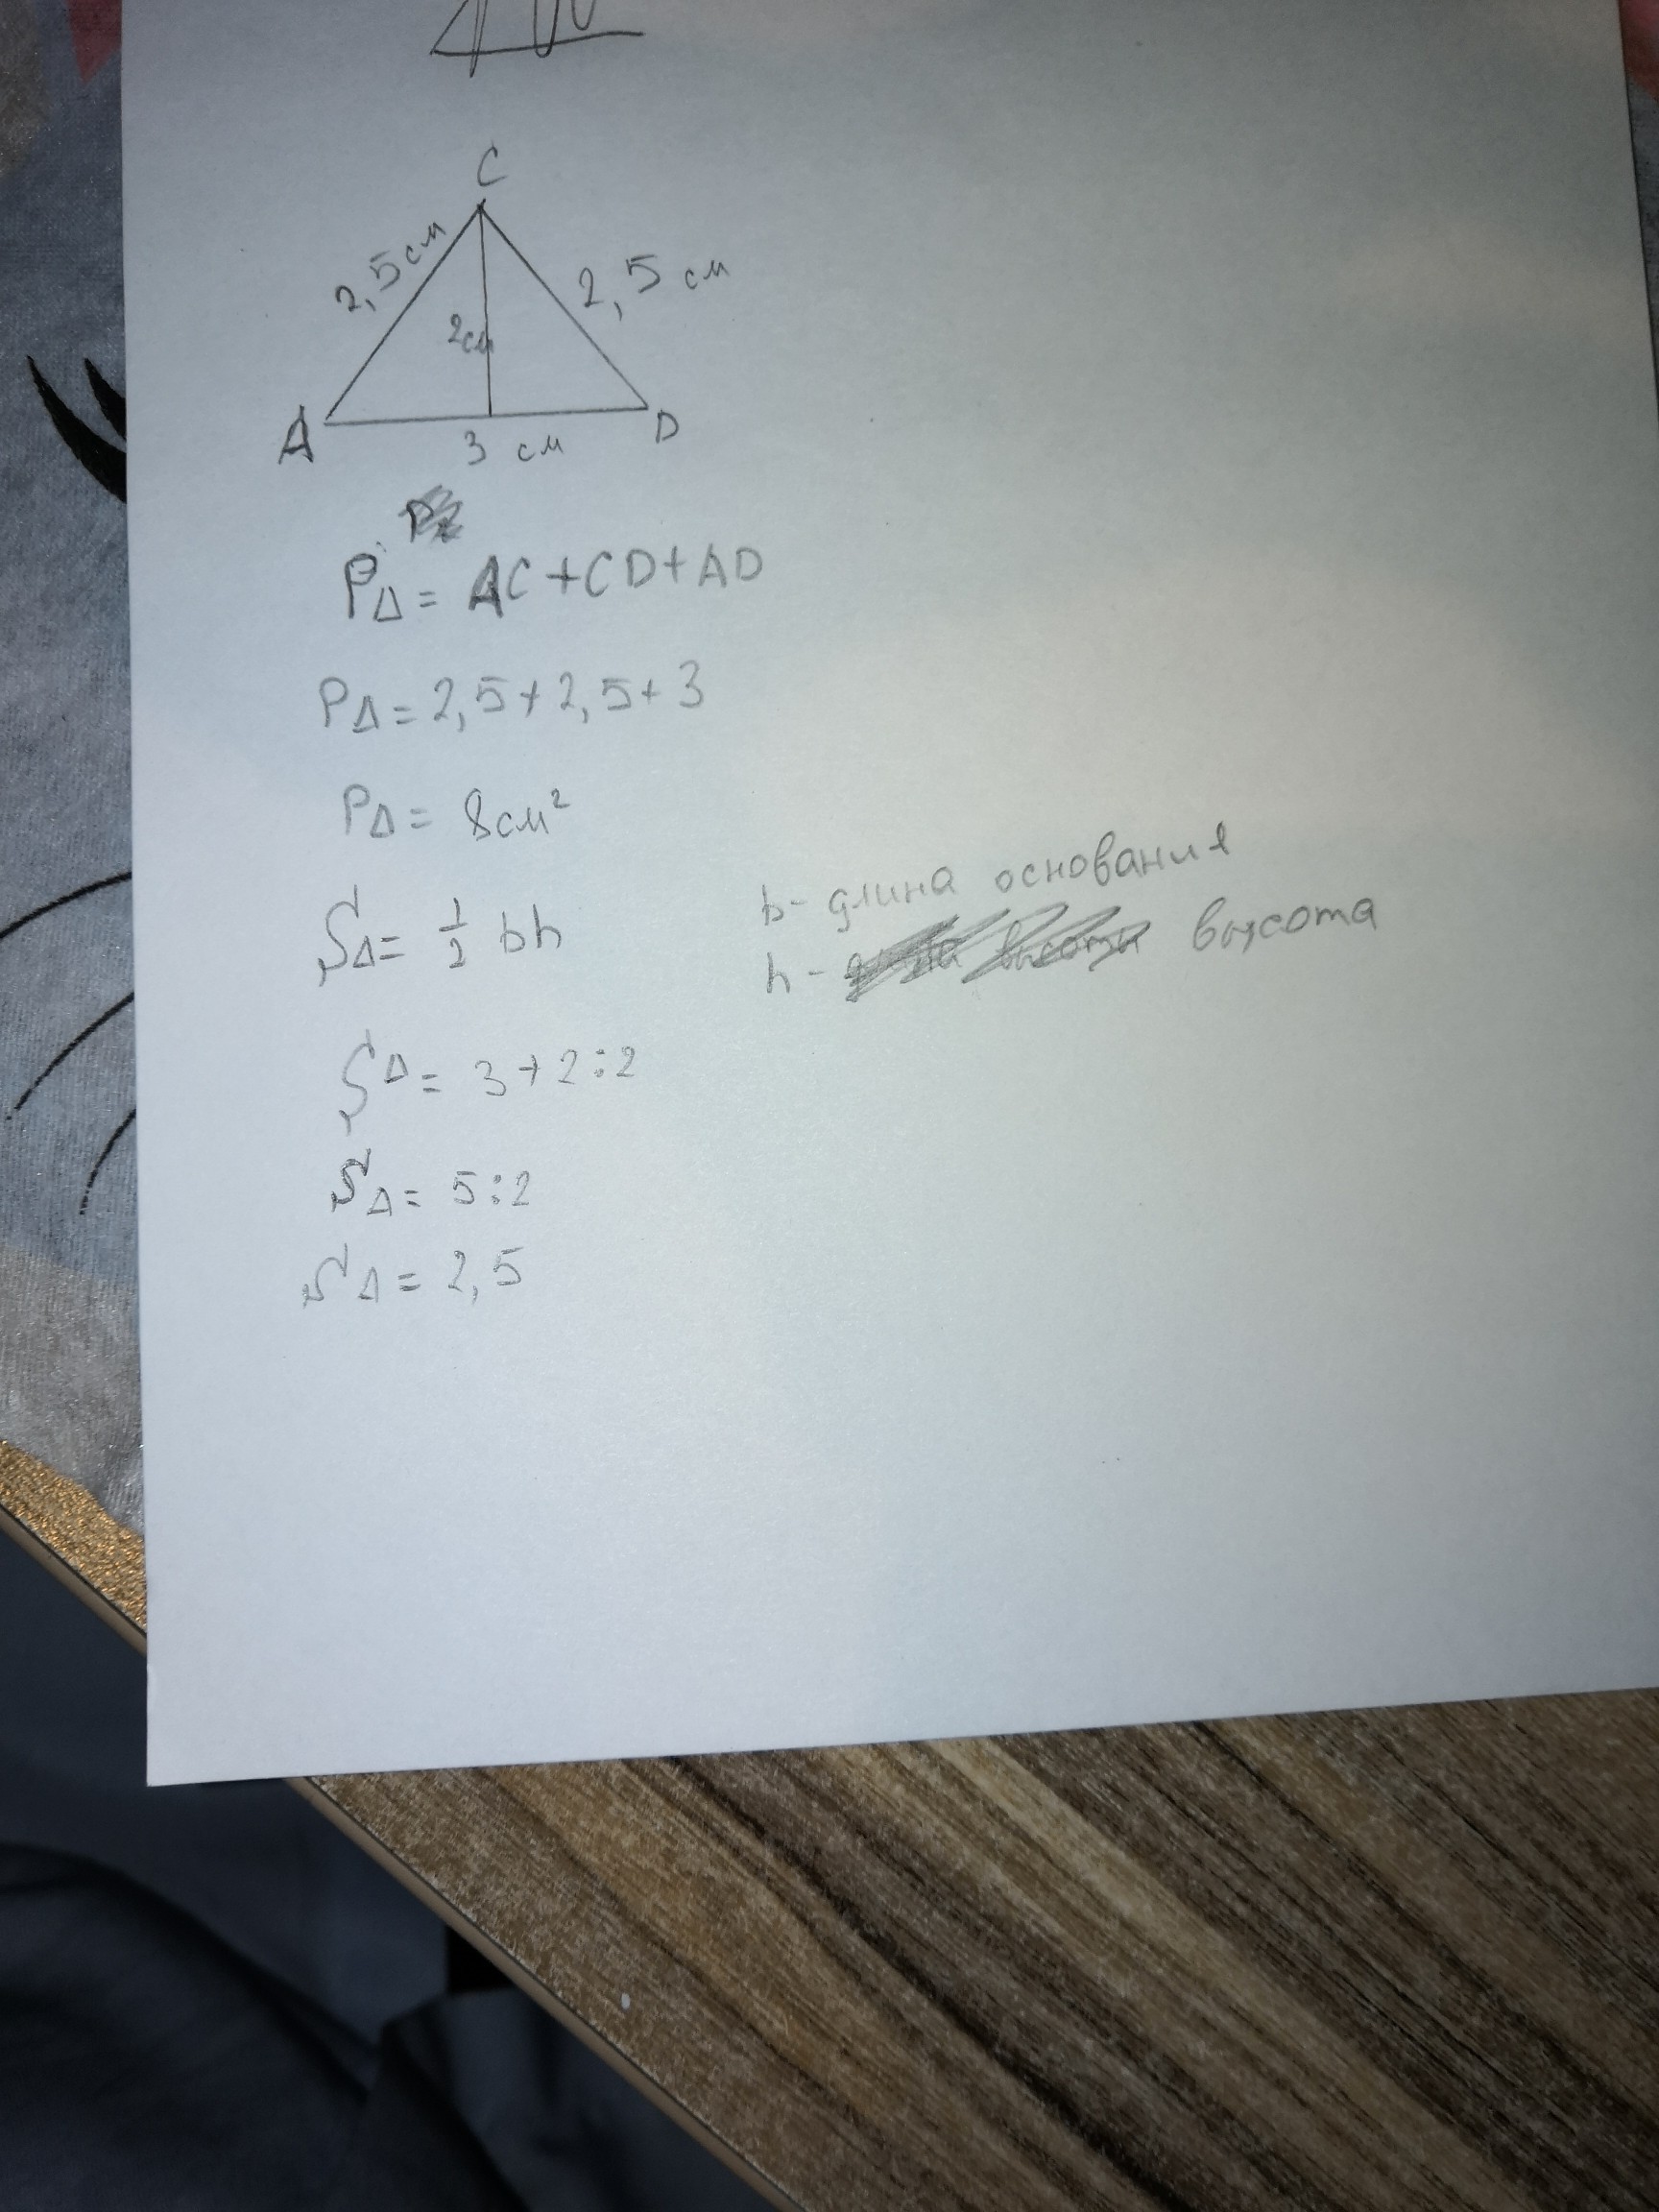 C
2,5 см
2,5 см
2см
A
D
3 см
P△= AC+CD+AD
P△= 2,5+2,5+3
P△= 8см²
S△= 1/2 bh
b- длина основания
h- высота
S△= 3+2:2
S△= 5:2
S△= 2,5